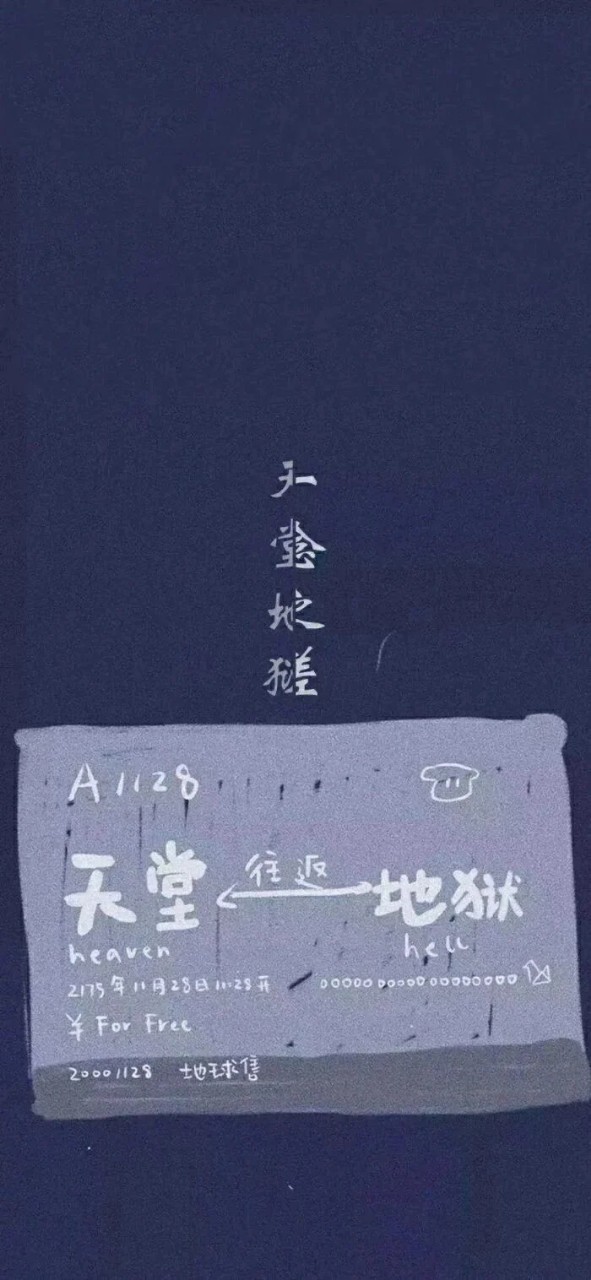 天堂地狱
一念之差
A1128
往返
天堂 地狱
heaven hell
2175年11月28日11:28开
¥ For Free
20001128 地球售